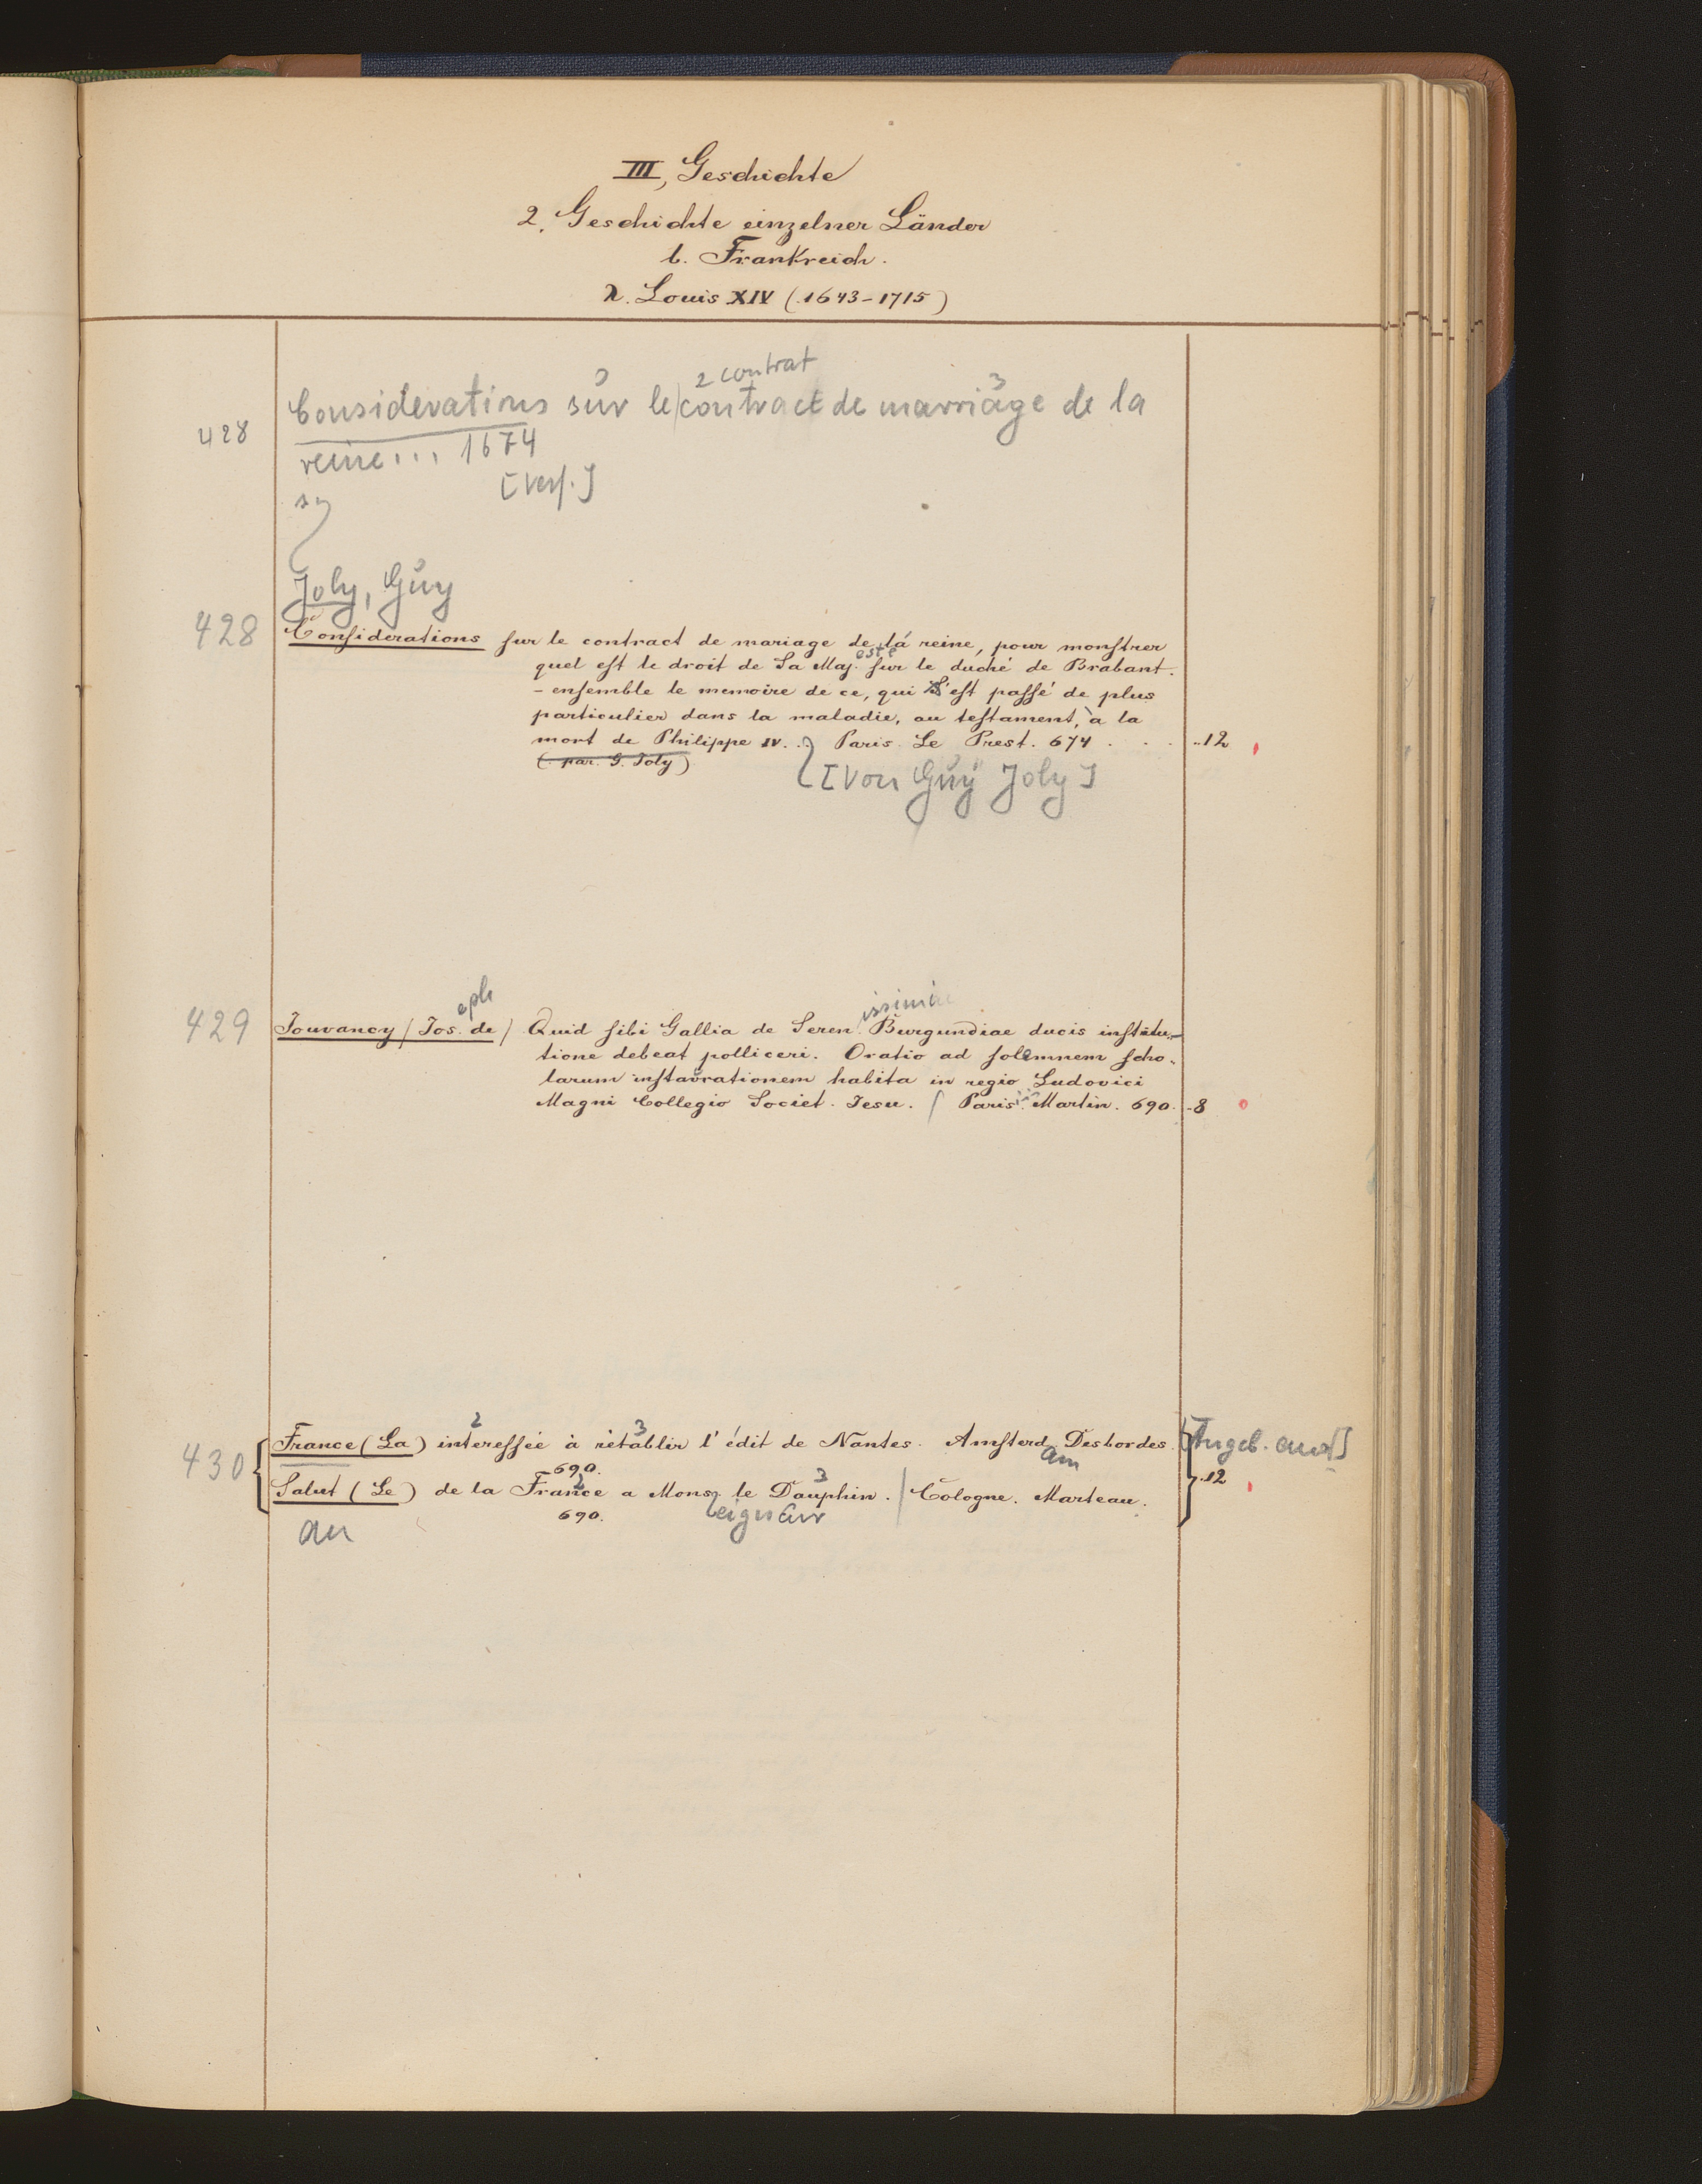 III, Geschichte
2. Geschichte einzelner Länder
b. Frankreich.
λ. Louis XIV (1643-1715)
2 contrat 3
428 Considerations sur le contract de marriage de la
reine... 1674
[Verf.]
Joly, Guy
428 Considerations sur le contract de mariage de la reine, pour monstrer
este
quel est le droit de Sa Maj. sur le duché de Brabant.
- ensemble le memoire de ce, qui s'est passé de plus
particulier dans la maladie, au testament, à la
mort de Philippe IV. . Paris. Le Prest. 674 . . . ..12
(par. G. Joly)
[Von Guy Joly]
eph issimi
429 Jouvancy / Jos. de / Quid sibi Gallia de Seren. Burgundiae ducis institu-
tione debeat polliceri. Oratio ad solemnem scho-
larum instaurationem habita in regio Ludovici
Magni Collegio Societ. Jesu. / Paris. Martin. 690. -8
2 3
430 France (La) interessée à rétablir l'édit de Nantes. Amsterd. Desbordes. [Angeb.
am
690.
2 3 .12
Salut (Le) de la France a Mons. le Dauphin. / Cologne. Marteau.
690. eigneur
au